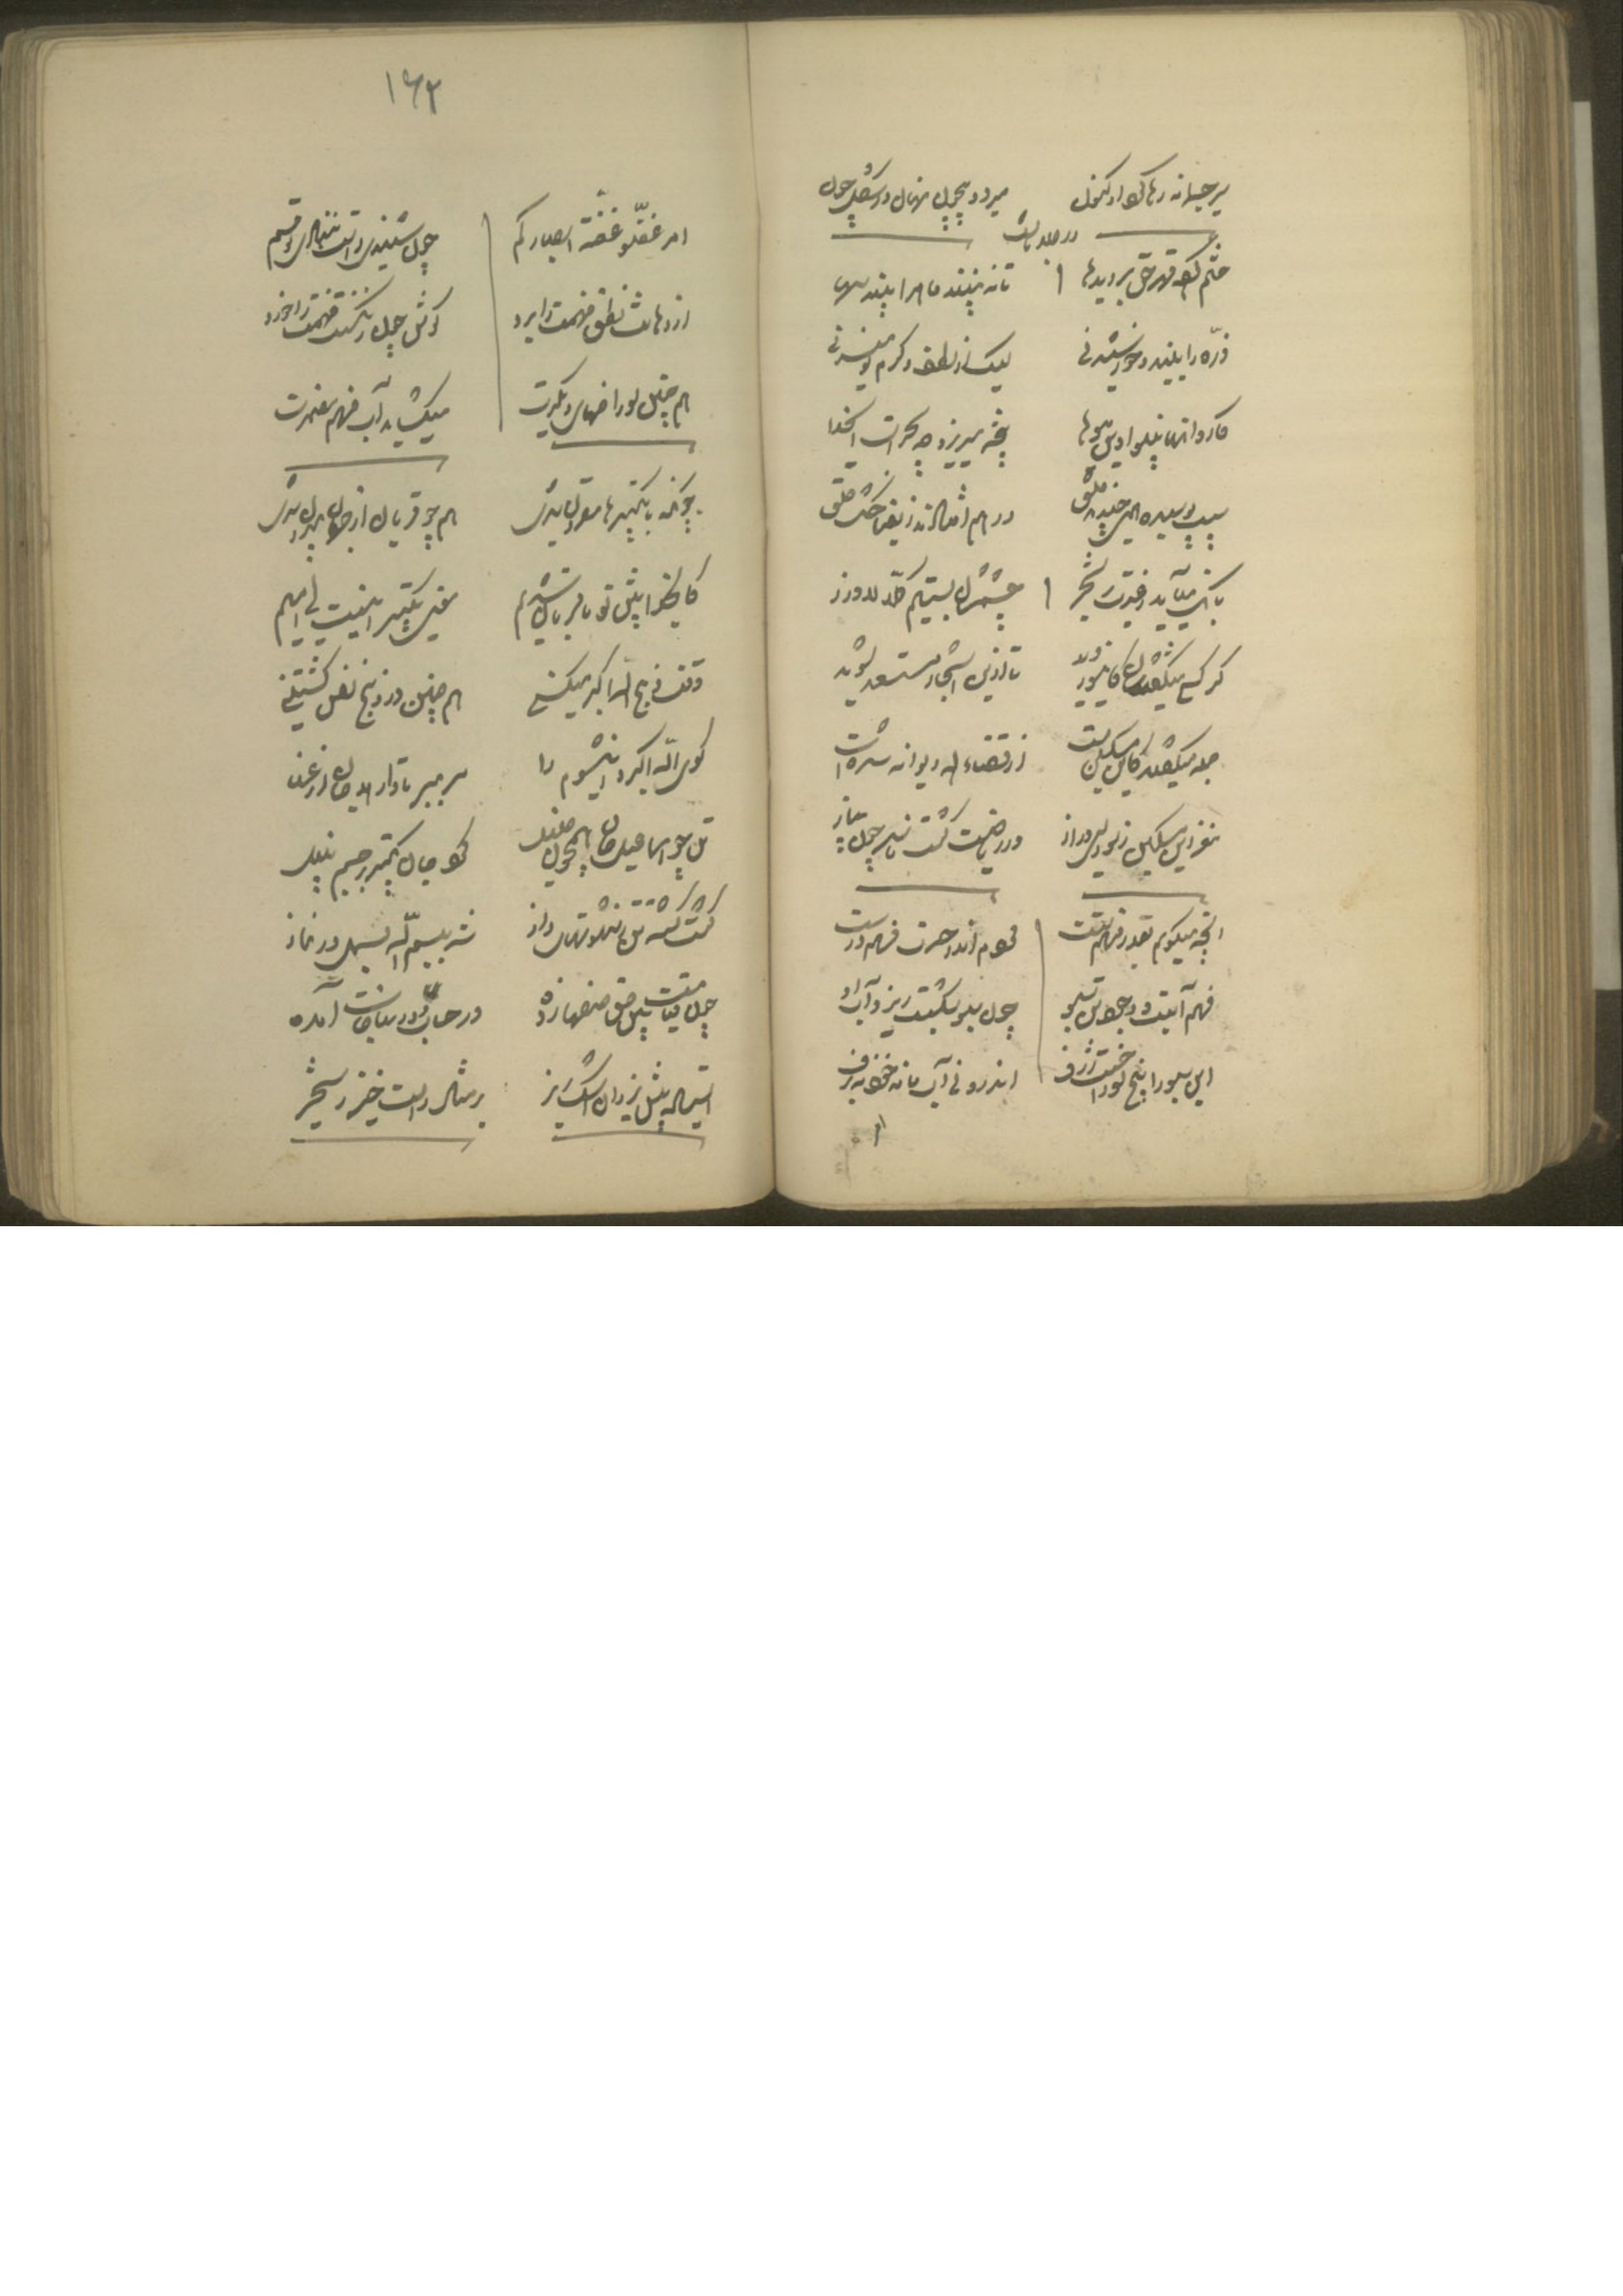 می‌رود همچون
ختم کرده قهر حق بر دیدها تا نه بیند ماه را بیند سها
ذره را بیند و خورشید نی لیک از لطف و کرم نومید نی
کاروانها بینوا وین میوه‌ها پخته میریزد چه سحرست ای خدا
سیب پوسیده همی چیدند خلق درهم افتاده ز یغما خشک حلق
بانگ می‌آید ز غیرت بر شجر چشمشان بستیم کلا لا وزر
گر کسی میگفتشان کاین سو روید تا ازین اشجار مستسعد شوید
جمله میگفتند کاین مسکین مست از قضاء الله دیوانه شدست
مغز این مسکین ز سودای دراز وز ریاضت گشت فاسد چون پیاز
آنچه میگویم بقدر فهم تست مردم اندر حسرت فهم درست
فهم آبست و وجود تن سبو چون سبو بشکست ریزد آب ازو
این سبو را پنج سوراخست ژرف اندرو نی آب ماند خود نه برف
۱۶۲
امر غضوا غضة ابصارکم چون شنیدی راست ننهادی تو سم
از دهانت نطق فهمت را برد گوش چون ریگست فهمت را خورد
همچنین سوراخهای دیگرت میکشاند آب فهم مضمرت
چونکه با تکبیرها مقرون شدند همچو قربان از جهان بیرون شدند
کای خدا پیش تو ما قربان شدیم معنی تکبیر اینست ای امیم
وقت ذبح الله اکبر میکنی همچنین در ذبح نفس کشتنی
گوی الله اکبر و این شوم را سر ببر تا وارهد جان از عنا
تن چو اسماعیل و جان همچون خلیل کرد جان تکبیر بر جسم نبیل
گشت کشته تن ز شهوتها و آز شد ببسم الله بسمل در نماز
چون قیامت پیش حق صفها زده در حساب و در مناجات آمده
ایستاده پیش یزدان اشک ریز بر مثال راست خیز رستخیز